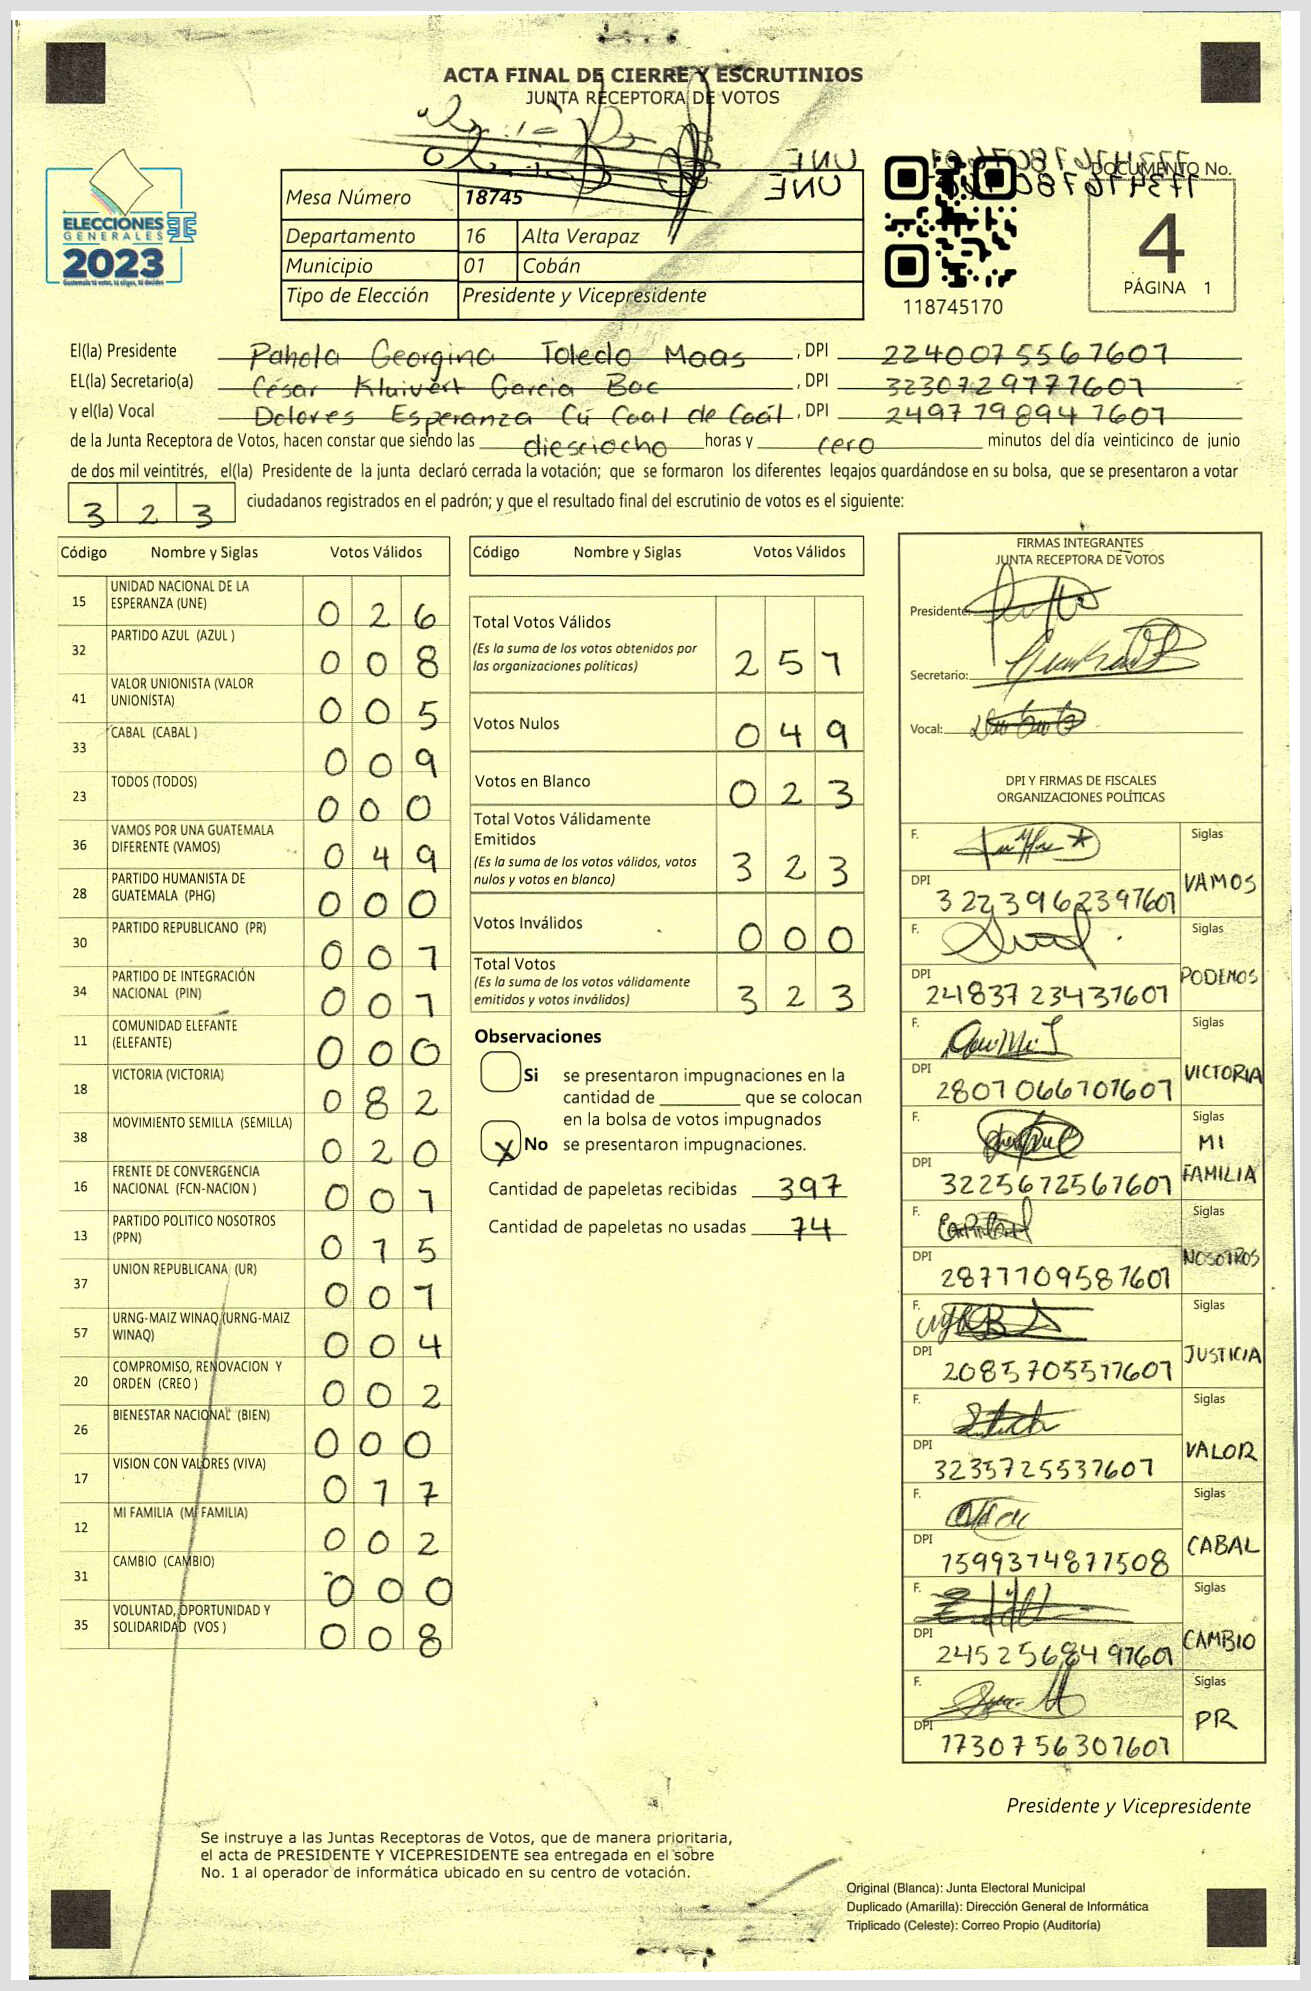 ACTA FINAL DE CIERRE Y ESCRUTINIOS
JUNTA RECEPTORA DE VOTOS
UNE
UNE
DOCUMENTO No.
4
PÁGINA 1
ELECCIONES
GENERALES
2023
Mesa Número 18745
Departamento 16 Alta Verapaz
Municipio 01 Cobán
Tipo de Elección Presidente y Vicepresidente
118745170
El(la) Presidente Pahola Georgina Toledo Maas, DPI 2240075567601
EL(la) Secretario(a) César Kluivert Garcia Bac, DPI 3230729777601
y el(la) Vocal Dolores Esperanza Cú Caal de Caál, DPI 2497798947601
de la Junta Receptora de Votos, hacen constar que siendo las diesciocho horas y cero minutos del día veinticinco de junio
de dos mil veintitrés, el(la) Presidente de la junta declaró cerrada la votación; que se formaron los diferentes legajos guardándose en su bolsa, que se presentaron a votar
323 ciudadanos registrados en el padrón; y que el resultado final del escrutinio de votos es el siguiente:
Código Nombre y Siglas Votos Válidos
15 UNIDAD NACIONAL DE LA ESPERANZA (UNE) 026
32 PARTIDO AZUL (AZUL ) 008
41 VALOR UNIONISTA (VALOR UNIONISTA) 005
33 CABAL (CABAL ) 009
23 TODOS (TODOS) 000
36 VAMOS POR UNA GUATEMALA DIFERENTE (VAMOS) 049
28 PARTIDO HUMANISTA DE GUATEMALA (PHG) 000
30 PARTIDO REPUBLICANO (PR) 001
34 PARTIDO DE INTEGRACIÓN NACIONAL (PIN) 001
11 COMUNIDAD ELEFANTE (ELEFANTE) 000
18 VICTORIA (VICTORIA) 082
38 MOVIMIENTO SEMILLA (SEMILLA) 020
16 FRENTE DE CONVERGENCIA NACIONAL (FCN-NACION ) 001
13 PARTIDO POLITICO NOSOTROS (PPN) 015
37 UNION REPUBLICANA (UR) 001
57 URNG-MAIZ WINAQ (URNG-MAIZ WINAQ) 004
20 COMPROMISO, RENOVACION Y ORDEN (CREO ) 002
26 BIENESTAR NACIONAL (BIEN) 000
17 VISION CON VALORES (VIVA) 017
12 MI FAMILIA (MI FAMILIA) 002
31 CAMBIO (CAMBIO) 000
35 VOLUNTAD, OPORTUNIDAD Y SOLIDARIDAD (VOS ) 008
Código Nombre y Siglas Votos Válidos
Total Votos Válidos 251
(Es la suma de los votos obtenidos por
las organizaciones políticas)
Votos Nulos 049
Votos en Blanco 023
Total Votos Válidamente
Emitidos 323
(Es la suma de los votos válidos, votos
nulos y votos en blanco)
Votos Inválidos 000
Total Votos 323
(Es la suma de los votos válidamente
emitidos y votos inválidos)
Observaciones
Si se presentaron impugnaciones en la
cantidad de ________ que se colocan
en la bolsa de votos impugnados
X No se presentaron impugnaciones.
Cantidad de papeletas recibidas 397
Cantidad de papeletas no usadas 74
FIRMAS INTEGRANTES
JUNTA RECEPTORA DE VOTOS
Presidente:
Secretario:
Vocal:
DPI Y FIRMAS DE FISCALES
ORGANIZACIONES POLÍTICAS
F. Siglas
DPI 3223962397601 VAMOS
F. Siglas
DPI 2483723437601 PODEMOS
F. Siglas
DPI 2807066707601 VICTORIA
F. Siglas
DPI 3225672567601 MI FAMILIA
F. Siglas
DPI 2877709587601 NOSOTROS
F. Siglas
DPI 2085705517601 JUSTICIA
F. Siglas
DPI 3235725537601 VALOR
F. Siglas
DPI 1599374877508 CABAL
F. Siglas
DPI 2452568497601 CAMBIO
F. Siglas
DPI 1730756307601 PR
Presidente y Vicepresidente
Se instruye a las Juntas Receptoras de Votos, que de manera prioritaria,
el acta de PRESIDENTE Y VICEPRESIDENTE sea entregada en el sobre
No. 1 al operador de informática ubicado en su centro de votación.
Original (Blanca): Junta Electoral Municipal
Duplicado (Amarilla): Dirección General de Informática
Triplicado (Celeste): Correo Propio (Auditoría)